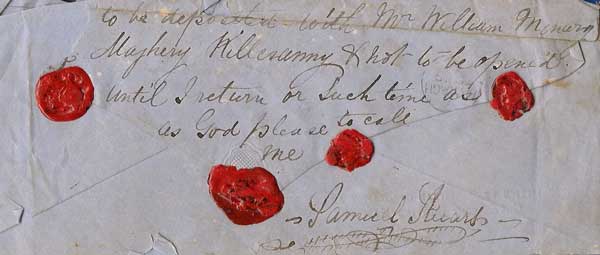 to be deposited with Mr William
Maghery Killesanny & not to be opened
until I return or Such time as
as God please to call
me
Samuel